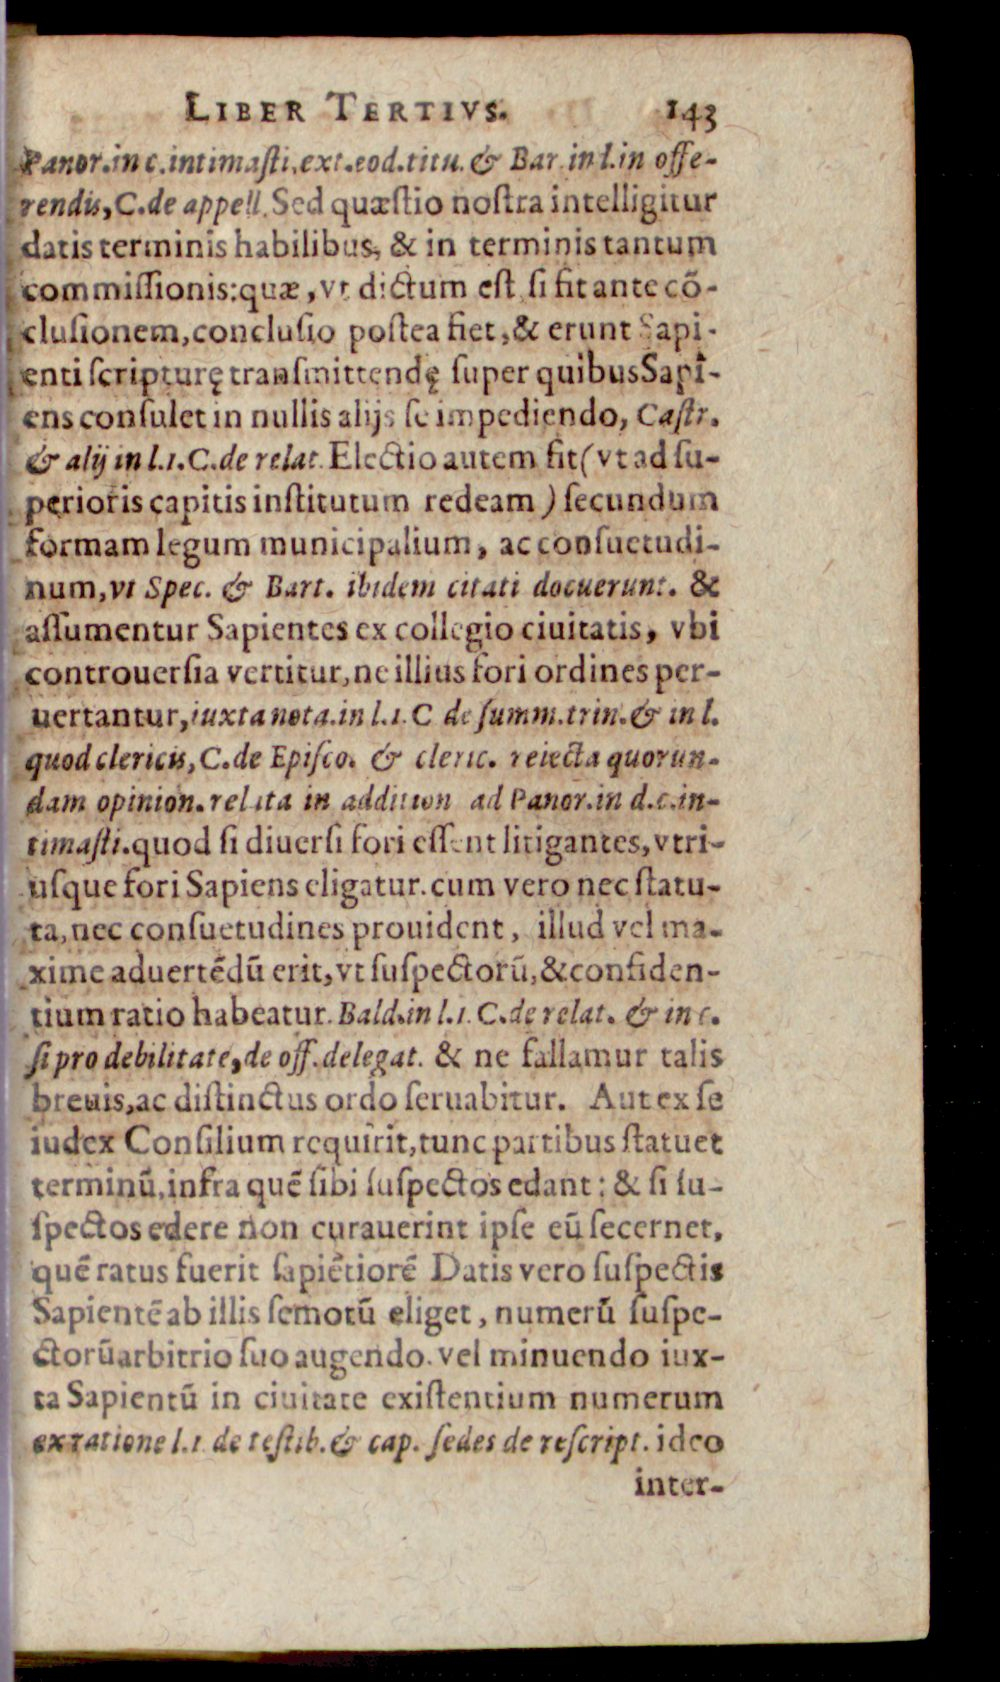 LIBER TERTIVS. 143
Panor.in c.intimaſti,ext.eod.titu. & Bar.in l.in offe-
rendis,C.de appell. Sed quæſtio noſtra intelligitur
datis terminis habilibus, & in terminis tantum
commiſſionis:quæ, vt dictum eſt ſi fit ante cõ-
cluſionem,concluſio poſtea fiet,& erunt Sapi-
enti ſcripturę tranſmittendę ſuper quibus Sapi-
ens conſulet in nullis alijs ſe impediendo, Caſtr.
& alij in l.1.C.de relat. Electio autem fit( vt ad ſu-
perioris capitis inſtitutum redeam ) ſecundum
formam legum municipalium, ac conſuetudi-
num,vt Spec. & Bart. ibidem citati docuerunt. &
aſſumentur Sapientes ex collegio ciuitatis, vbi
controuerſia vertitur,ne illius fori ordines per-
uertantur,iuxta nota.in l.1.C de ſumm.trin.& in l.
quod clericis,C.de Epiſco. & cleric. reiecta quorun-
dam opinion.relata in addition ad Panor.in d.c.in-
timaſti.quod ſi diuerſi fori eſſent litigantes,vtri-
uſque fori Sapiens eligatur.cum vero nec ſtatu-
ta,nec conſuetudines prouident, illud vel ma-
xime aduertẽdũ erit,vt ſuſpectorũ,&confiden-
tium ratio habeatur. Bald.in l.1. C.de relat. & in c.
ſi pro debilitate,de off.delegat. & ne fallamur talis
breuis,ac diſtinctus ordo ſeruabitur. Aut ex ſe
iudex Conſilium requirit,tunc partibus ſtatuet
terminũ,infra quẽ ſibi ſuſpectos edant: & ſi ſu-
ſpectos edere non curauerint ipſe eũ ſecernet,
quẽ ratus fuerit ſapiẽtiorẽ Datis vero ſuſpectis
Sapientẽ ab illis ſemotũ eliget, numerũ ſuſpe-
ctorũ arbitrio ſuo augendo. vel minuendo iux-
ta Sapientũ in ciuitate exiſtentium numerum
ex ratione l.1 de teſtib.& cap. ſedes de reſcript. ideo
inter-